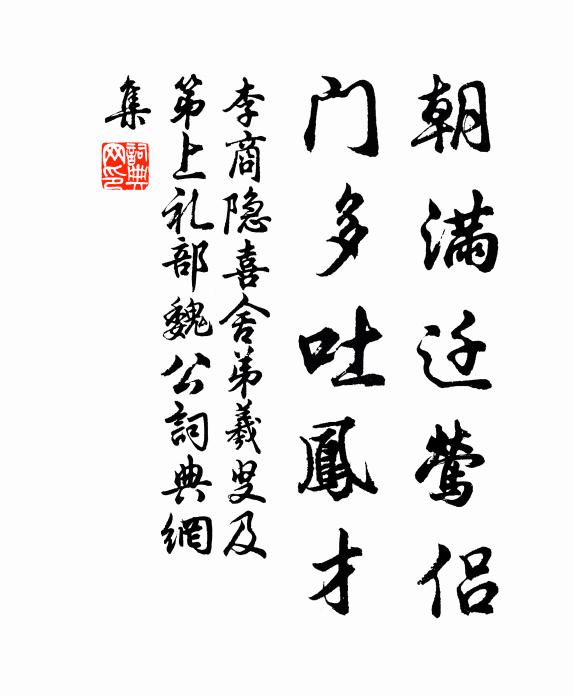 朝满迁莺侣
门多吐鳳才
李商隐喜舍弟羲叟及
第上礼部魏公詞典網
集
詞典网印